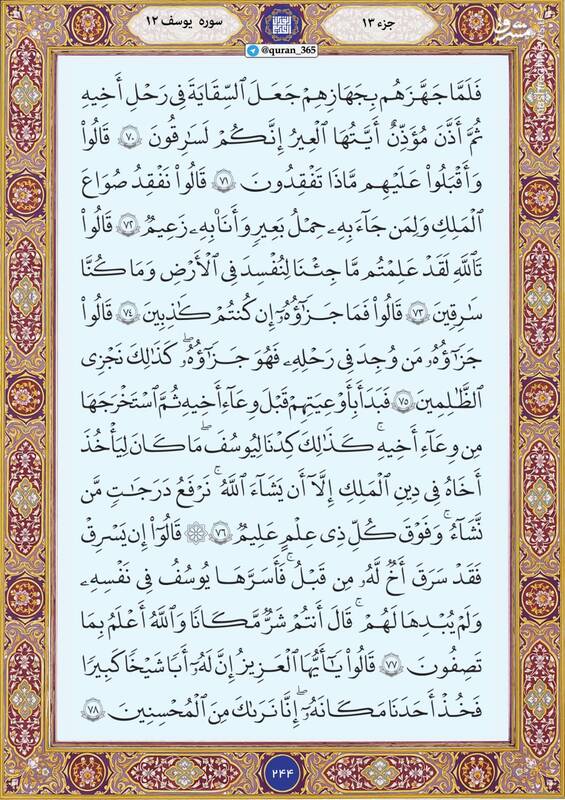 جزء ۱۳
سوره یوسف ۱۲
@quran_365
فَلَمَّا جَهَّزَهُم بِجَهَازِهِمْ جَعَلَ ٱلسِّقَايَةَ فِى رَحْلِ أَخِيهِ
ثُمَّ أَذَّنَ مُؤَذِّنٌ أَيَّتُهَا ٱلْعِيرُ إِنَّكُمْ لَسَٰرِقُونَ ﴿۷۰﴾ قَالُوا۟
وَأَقْبَلُوا۟ عَلَيْهِم مَّاذَا تَفْقِدُونَ ﴿۷۱﴾ قَالُوا۟ نَفْقِدُ صُوَاعَ
ٱلْمَلِكِ وَلِمَن جَآءَ بِهِۦ حِمْلُ بَعِيرٍ وَأَنَا۠ بِهِۦ زَعِيمٌ ﴿۷۲﴾ قَالُوا۟
تَٱللَّهِ لَقَدْ عَلِمْتُم مَّا جِئْنَا لِنُفْسِدَ فِى ٱلْأَرْضِ وَمَا كُنَّا
سَٰرِقِينَ ﴿۷۳﴾ قَالُوا۟ فَمَا جَزَٰٓؤُهُۥٓ إِن كُنتُمْ كَٰذِبِينَ ﴿۷۴﴾ قَالُوا۟
جَزَٰٓؤُهُۥ مَن وُجِدَ فِى رَحْلِهِۦ فَهُوَ جَزَٰٓؤُهُۥ ۚ كَذَٰلِكَ نَجْزِى
ٱلظَّٰلِمِينَ ﴿۷۵﴾ فَبَدَأَ بِأَوْعِيَتِهِمْ قَبْلَ وِعَآءِ أَخِيهِ ثُمَّ ٱسْتَخْرَجَهَا
مِن وِعَآءِ أَخِيهِ ۚ كَذَٰلِكَ كِدْنَا لِيُوسُفَ ۖ مَا كَانَ لِيَأْخُذَ
أَخَاهُ فِى دِينِ ٱلْمَلِكِ إِلَّآ أَن يَشَآءَ ٱللَّهُ ۚ نَرْفَعُ دَرَجَٰتٍ مَّن
نَّشَآءُ ۗ وَفَوْقَ كُلِّ ذِى عِلْمٍ عَلِيمٌ ﴿۷۶﴾ ۞ قَالُوٓا۟ إِن يَسْرِقْ
فَقَدْ سَرَقَ أَخٌ لَّهُۥ مِن قَبْلُ ۚ فَأَسَرَّهَا يُوسُفُ فِى نَفْسِهِۦ
وَلَمْ يُبْدِهَا لَهُمْ ۚ قَالَ أَنتُمْ شَرٌّ مَّكَانًا وَٱللَّهُ أَعْلَمُ بِمَا
تَصِفُونَ ﴿۷۷﴾ قَالُوا۟ يَٰٓأَيُّهَا ٱلْعَزِيزُ إِنَّ لَهُۥٓ أَبًا شَيْخًا كَبِيرًا
فَخُذْ أَحَدَنَا مَكَانَهُۥٓ ۖ إِنَّا نَرَىٰكَ مِنَ ٱلْمُحْسِنِينَ ﴿۷۸﴾
۲۴۴